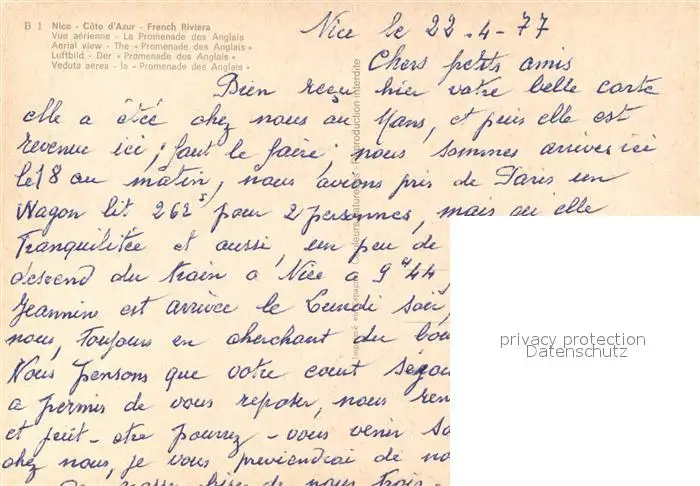 B 1 Nice - Côte d'Azur - French Riviera
Vue aérienne - La Promenade des Anglais
Aerial view - The «Promenade des Anglais»
Luftbild - Der «Promenade des Anglais»
Veduta aerea - la «Promenade des Anglais»
Nice le 22-4-77
Chers petits amis
Bien reçu hier votre belle carte
elle a étéé chez nous au Mans, et puis elle est
revenue ici, faut le faire, nous sommes arrives ici
le 18 au matin, nous avions pris de Paris un
Wagon lit 262 pour 2 personnes, mais qu'elle
Tranquilitée et aussi, un peu de
descend du train a Nice a 9 H 44,
Jeannin est arrivée le Lundi soir,
nous, toujours en cherchant du
Nous pensons que votre court
a permis de vous reposer, nous
et peut-etre pourrez-vous venir
chez nous, je vous previendrai de
de nous trois.
Reproduction interdite
privacy protection
Datenschutz